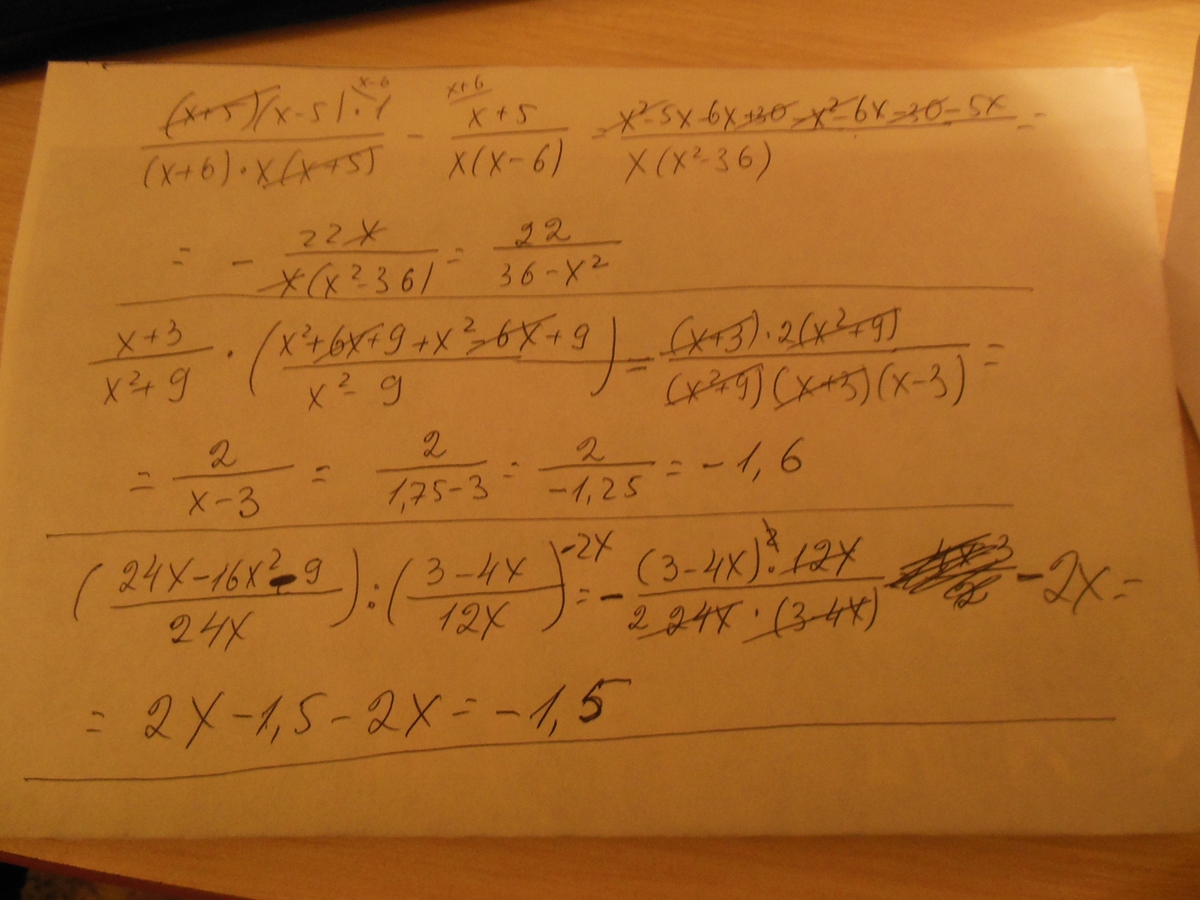 ((x+5)(x-5)·1)/((x+6)·x(x+5)) - (x+5)/(x(x-6)) = (x²-5x-6x+30-x²-6x-30-5x)/(x(x²-36)) =
x-6 x+6
= - 22x/(x(x²-36)) = 22/(36-x²)
(x+3)/(x²+9) · ((x²+6x+9+x²-6x+9)/(x²-9)) = ((x+3)·2(x²+9))/((x²+9)(x+3)(x-3)) =
= 2/(x-3) = 2/(1,75-3) = 2/(-1,25) = -1,6
((24x-16x²-9)/(24x)) : ((3-4x)/(12x)) -2x = - ((3-4x)²·12x)/(2 24x·(3-4x)) - 2x =
= 2x-1,5-2x = -1,5